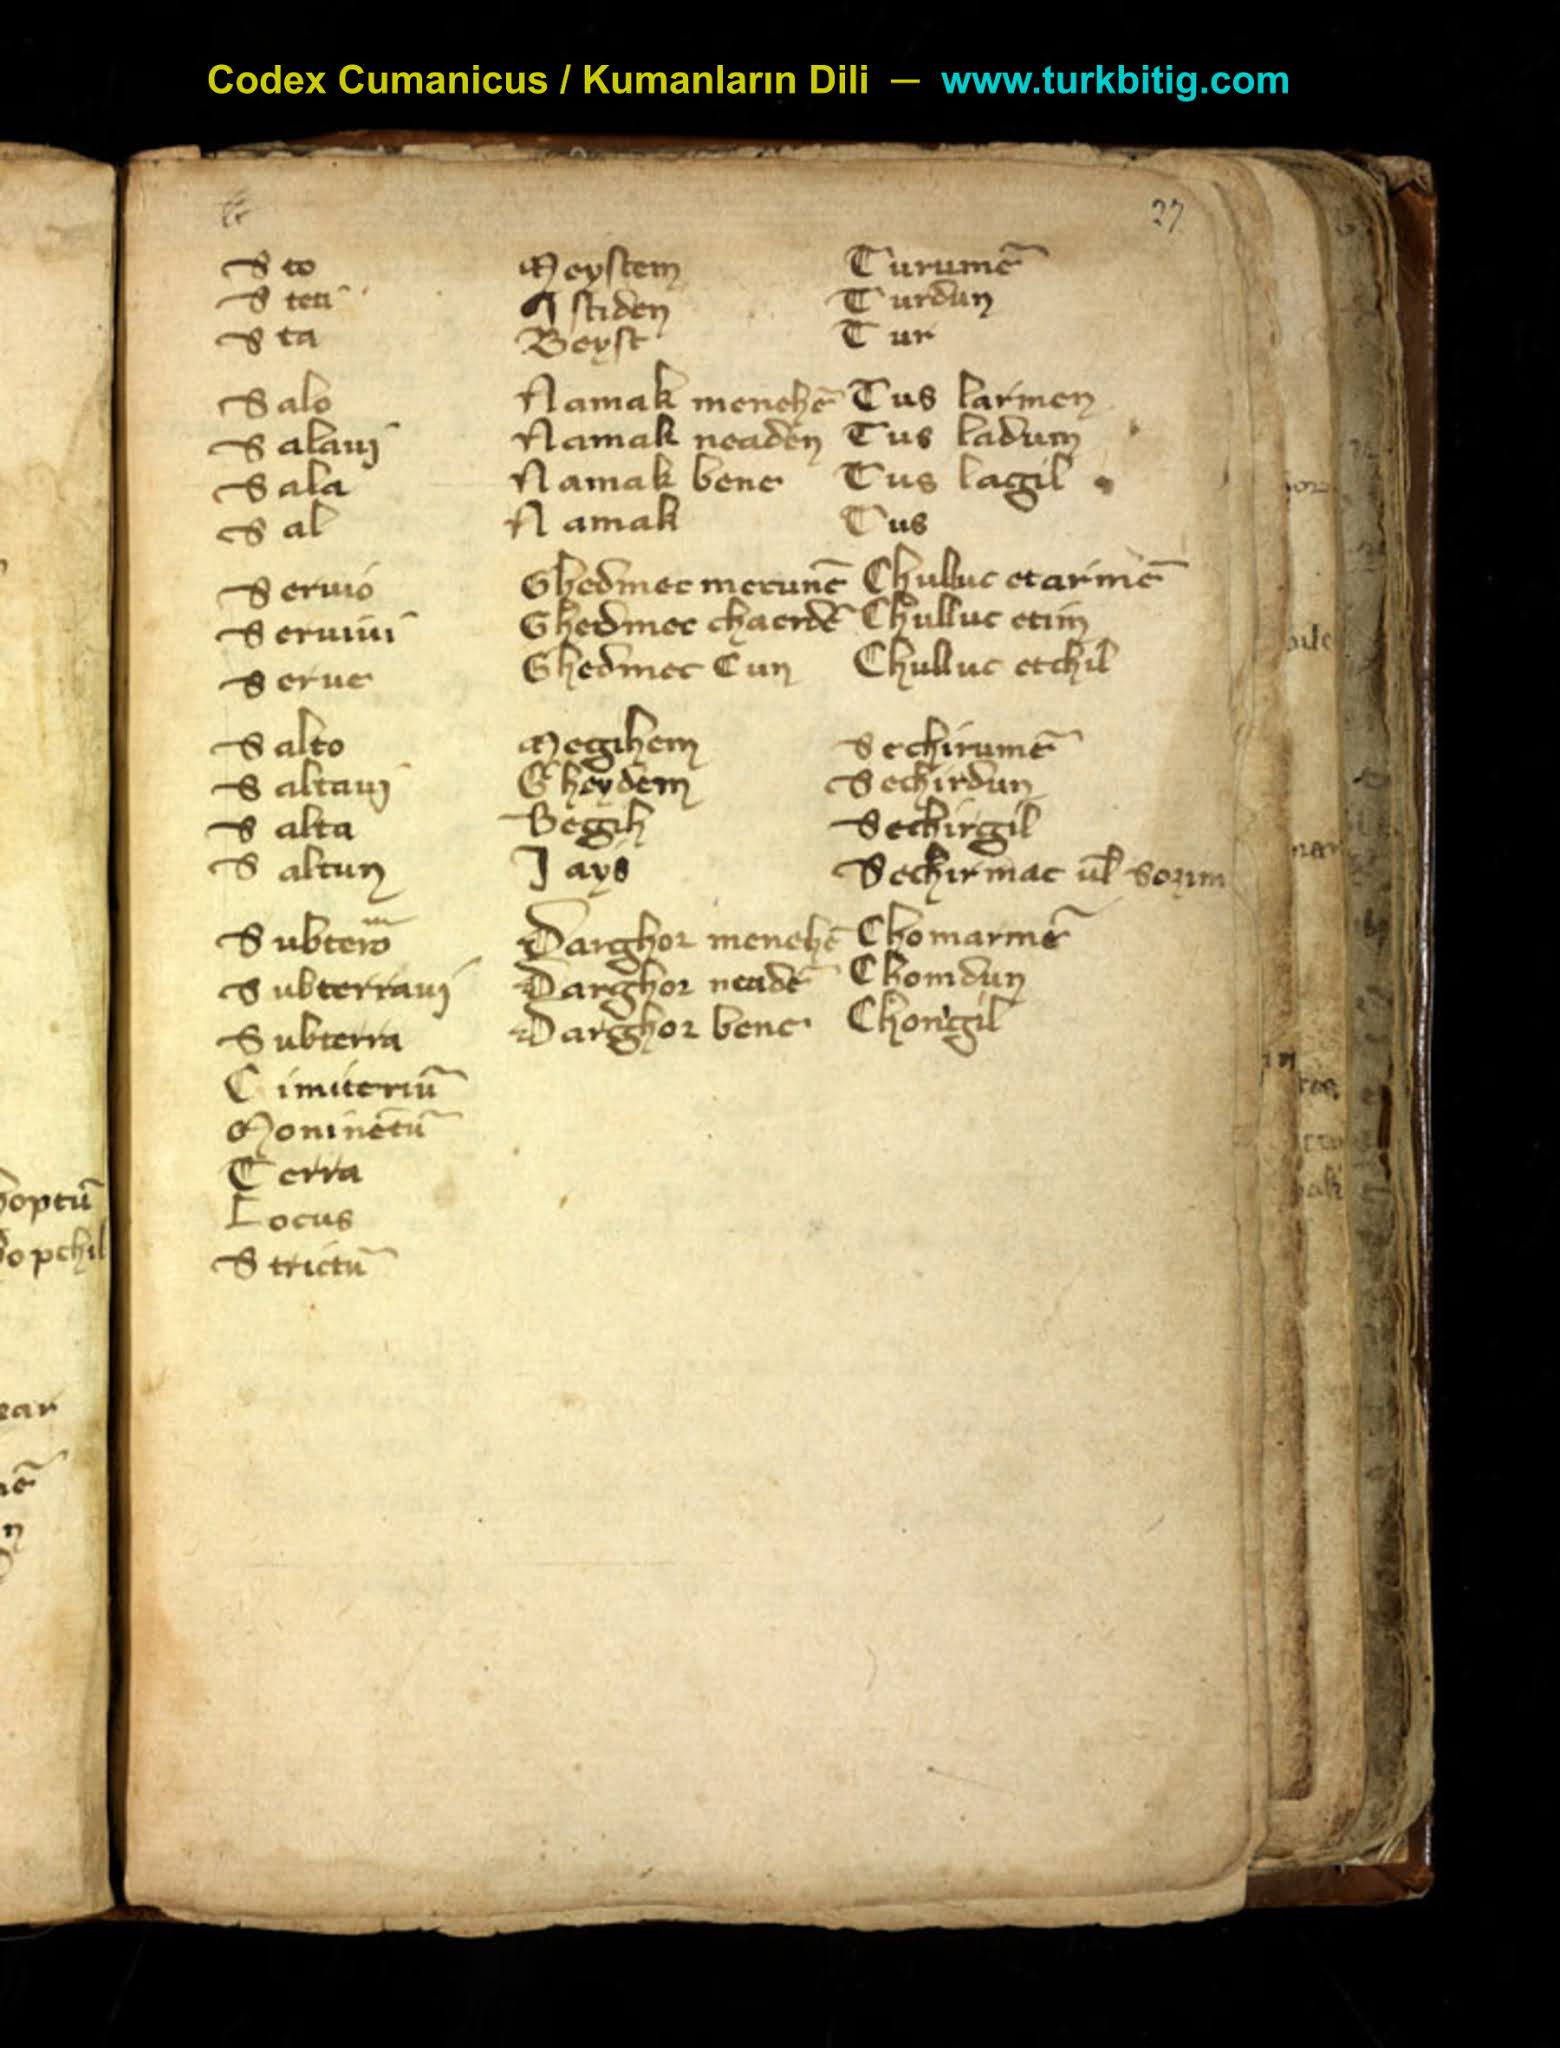 Codex Cumanicus / Kumanların Dili — www.turkbitig.com
27
Sto Meystem Turumē
Steti Astiden Turdun
Sta Beyst Tur
Salo Namak menehē Tus larmen
Salaui Namak neaden Tus ladum
Sala Namak bene Tus lagil
Sal Namak Tus
Seruio Ghedmec mecunē Chulluc etarmē
Seruiui Ghedmec chaerdē Chulluc etim
Serue Ghedmec Cun Chulluc etchil
Salto Megihem Sechirumē
Saltaui Gheydem Sechirdun
Salta Begih Sechirgil
Saltun Jays Sechirmac ul Sozum
Subtero Darghor menehē Chomarmē
Subterraui Darghor neadē Chomdun
Subterra Darghor bene Chongil
Cimiteriū
Moninētū
Terra
Locus
Strictū